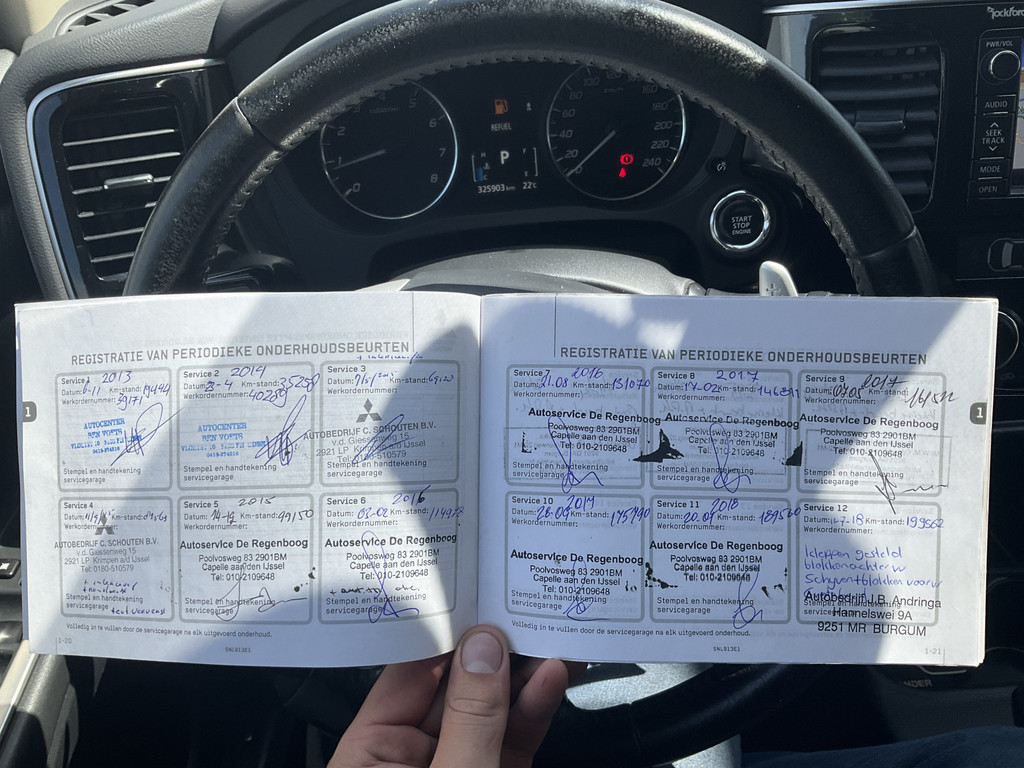 Rockford
PWR/VOL
AUDIO
SEEK
TRACK
MODE
OPEN
REFUEL
P
325903 km 22°C
0 1 2 5 6 7 8
0 20 40 60 80 100 160 180 200 220 240
km/h
START
STOP
ENGINE
REGISTRATIE VAN PERIODIEKE ONDERHOUDSBEURTEN
Service 1 2013
Datum: Km-stand:
Werkordernummer: 39171
AUTOCENTER
BEN VOETS
Stempel en handtekening
servicegarage
Service 2 2014
Datum: 23-4 Km-stand: 35258
Werkordernummer: 40289
AUTOCENTER
BEN VOETS
Stempel en handtekening
servicegarage
Service 3
Datum: Km-stand:
Werkordernummer:
AUTOBEDRIJF C. SCHOUTEN B.V.
v.d. Giessenweg 15
2921 LP Krimpen a/d IJssel
Tel: 0180-510579
Stempel en handtekening
servicegarage
Service 4
Datum: Km-stand:
Werkordernummer:
AUTOBEDRIJF C. SCHOUTEN B.V.
v.d. Giessenweg 15
2921 LP Krimpen a/d IJssel
Tel: 0180-510579
Stempel en handtekening
servicegarage
Service 5 2015
Datum: 14-12 Km-stand: 99150
Werkordernummer:
Autoservice De Regenboog
Poolvosweg 83 2901BM
Capelle aan den IJssel
Tel: 010-2109648
Stempel en handtekening
servicegarage
Service 6 2016
Datum: 03-02 Km-stand:
Werkordernummer:
Autoservice De Regenboog
Poolvosweg 83 2901BM
Capelle aan den IJssel
Tel: 010-2109648
Stempel en handtekening
servicegarage
Volledig in te vullen door de servicegarage na elk uitgevoerd onderhoud.
1-20
SNLB13E1
1
REGISTRATIE VAN PERIODIEKE ONDERHOUDSBEURTEN
Service 7 2016
Datum: 21.08 Km-stand: 131070
Werkordernummer:
Autoservice De Regenboog
Poolvosweg 83 2901BM
Capelle aan den IJssel
Tel: 010-2109648
Stempel en handtekening
servicegarage
Service 8 2017
Datum: 17-02 Km-stand:
Werkordernummer:
Autoservice De Regenboog
Poolvosweg 83 2901BM
Capelle aan den IJssel
Tel: 010-2109648
Stempel en handtekening
servicegarage
Service 9 2017
Datum: 07.05 Km-stand:
Werkordernummer:
Autoservice De Regenboog
Poolvosweg 83 2901BM
Capelle aan den IJssel
Tel: 010-2109648
Stempel en handtekening
servicegarage
Service 10
Datum: Km-stand: 175790
Werkordernummer:
Autoservice De Regenboog
Poolvosweg 83 2901BM
Capelle aan den IJssel
Tel: 010-2109648
Stempel en handtekening
servicegarage
Service 11 2018
Datum: 20.01 Km-stand:
Werkordernummer:
Autoservice De Regenboog
Poolvosweg 83 2901BM
Capelle aan den IJssel
Tel: 010-2109648
Stempel en handtekening
servicegarage
Service 12
Datum: 11-7-18 Km-stand: 199662
Werkordernummer:
kleppen gesteld
blokken achter
Schijven + blokken voor
Autobedrijf J.B. Andringa
Hannelswei 9A
9251 MR BURGUM
Stempel en handtekening
servicegarage
Volledig in te vullen door de servicegarage na elk uitgevoerd onderhoud.
SNLB13E1
1-21
1